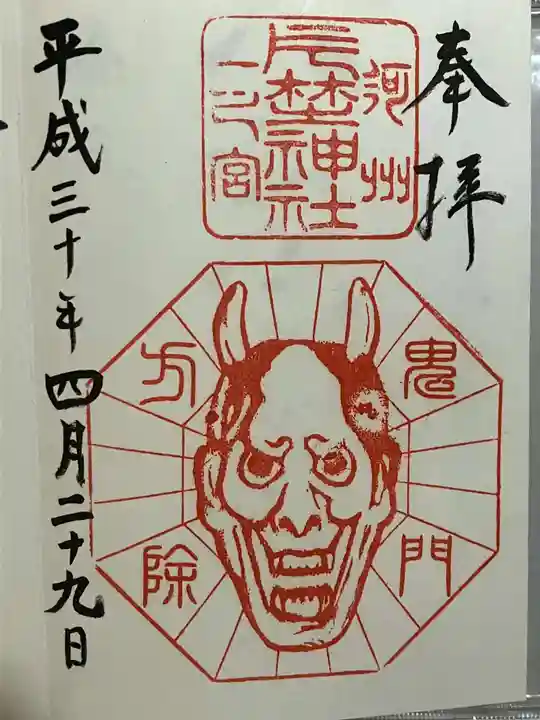 奉拝
河州
片埜神社
一之宮
鬼門
方除
平成三十年四月二十九日